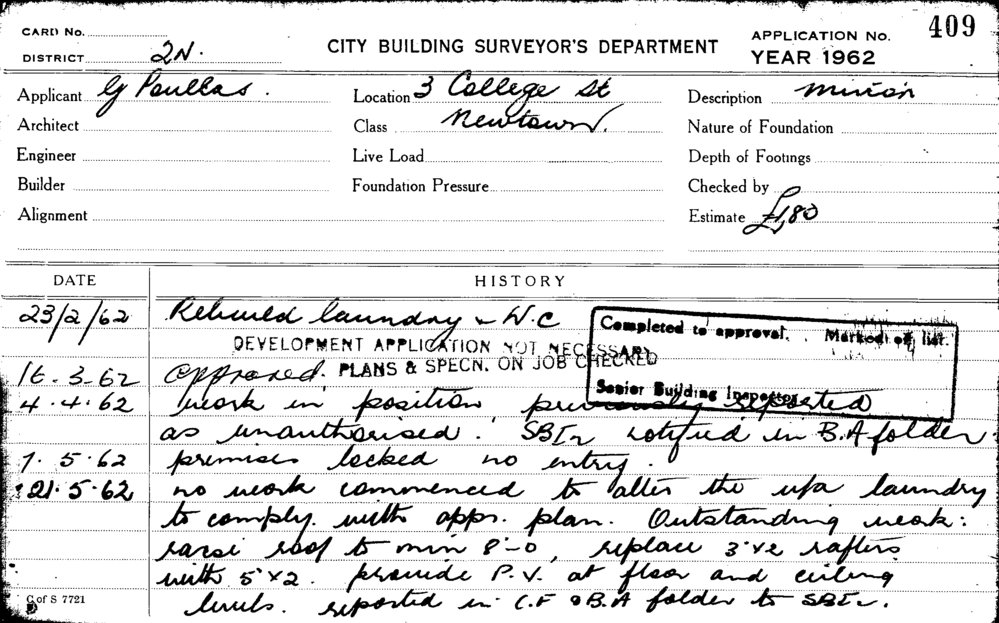 CARD No.
409
DISTRICT 2N.
CITY BUILDING SURVEYOR'S DEPARTMENT
APPLICATION No.
YEAR 1962
Applicant G Poullas.
Location 3 College St
Description minor
Architect
Class Newtown.
Nature of Foundation
Engineer
Live Load
Depth of Footings
Builder
Foundation Pressure
Checked by
Alignment
Estimate £180
DATE
HISTORY
23/2/62 Rebuild laundry & W.C
Completed to approval. Marked off list.
DEVELOPMENT APPLICATION NOT NECESSARY
PLANS & SPECN. ON JOB CHECKED
16.3.62 approved.
Senior Building Inspector
4.4.62 work in position previously reported
as unauthorised. SBIr notified in B.A folder.
7.5.62 premises locked no entry.
21.5.62 no work commenced to alter the u/a laundry
to comply. with appr. plan. Outstanding work:
raise roof to min 8'-0, replace 3"x2 rafters
with 5"x2. provide P.V. at floor and ceiling
levels. reported in C.F & B.A folder to SBIr.
C of S 7721